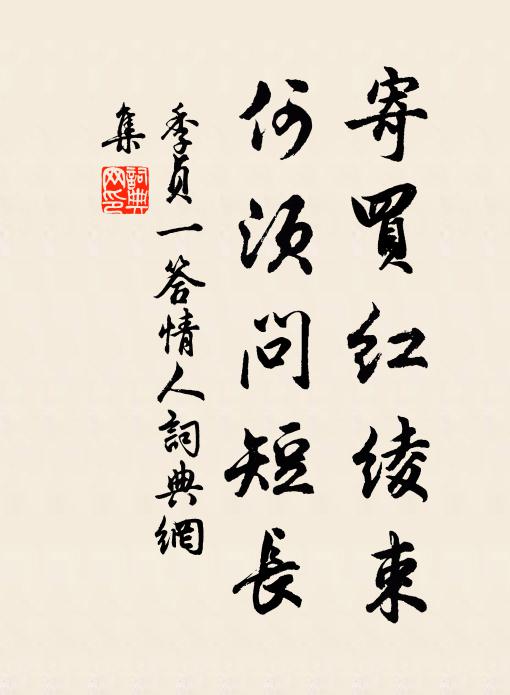 寄買紅綾束
何須問短長
季貞一答情人詞典網
集
詞典
网印